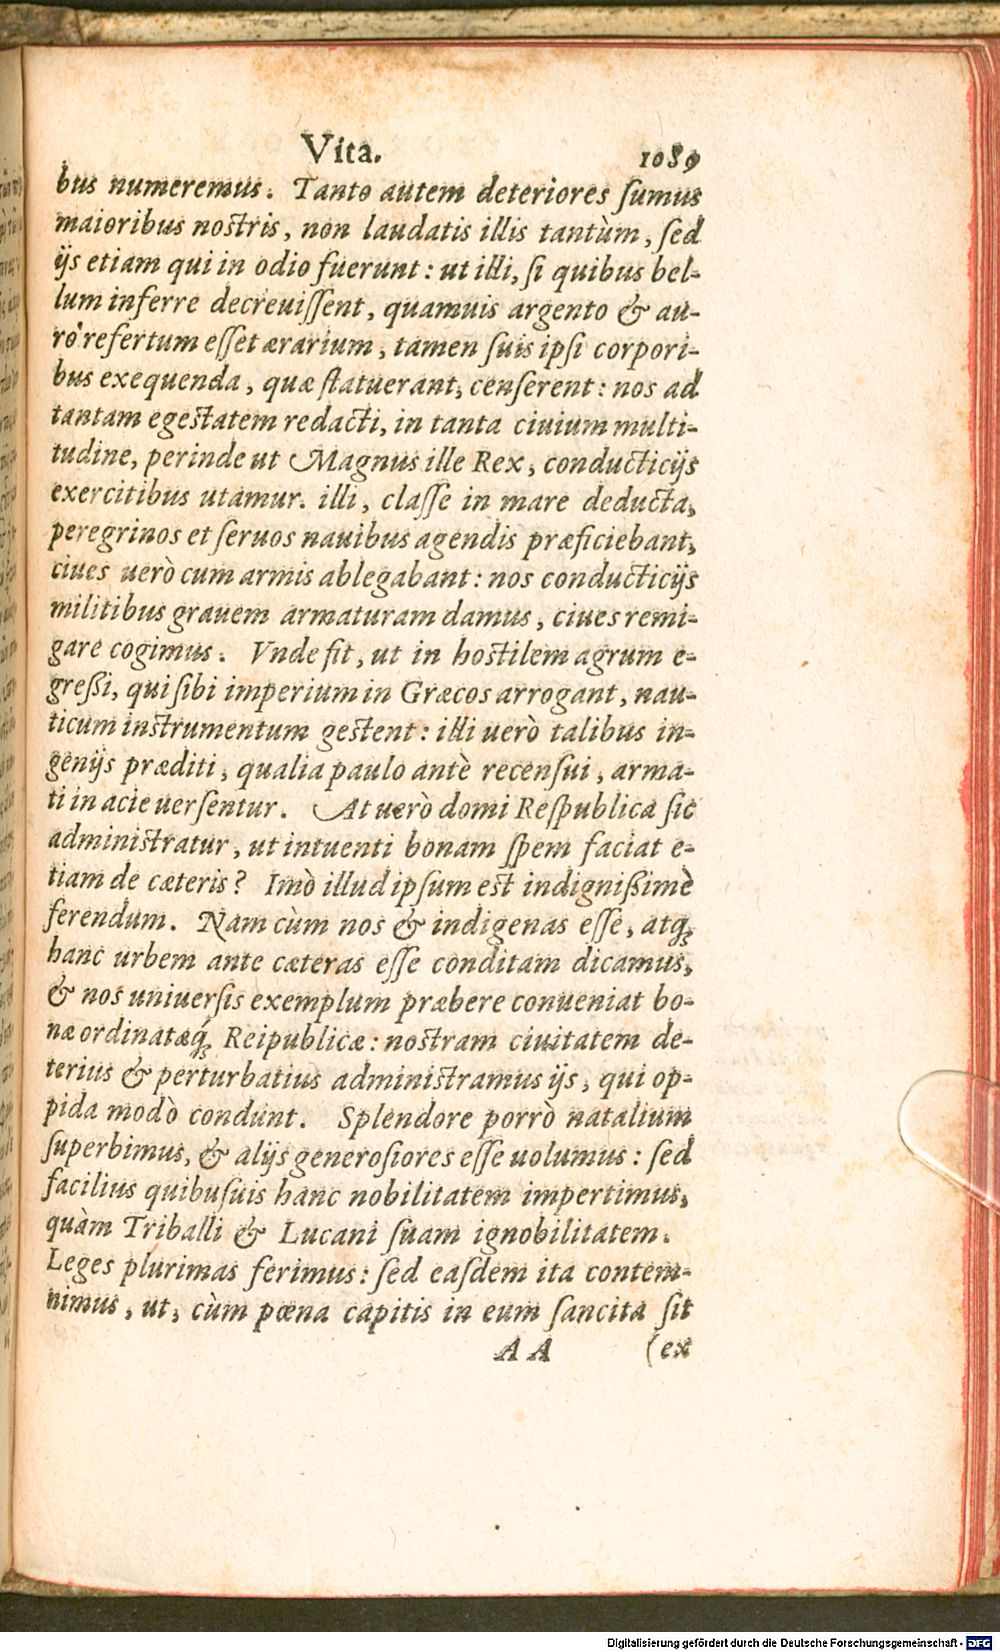 Vita. 1089
bus numeremus. Tanto autem deteriores ſumus
maioribus noſtris, non laudatis illis tantùm, ſed
ijs etiam qui in odio fuerunt: ut illi, ſi quibus bel-
lum inferre decreuiſſent, quamuis argento & au-
ro refertum eſſet ærarium, tamen ſuis ipſi corpori-
bus exequenda, quæ ſtatuerant, cenſerent: nos ad
tantam egeſtatem redacti, in tanta ciuium multi-
tudine, perinde ut Magnus ille Rex, conducticijs
exercitibus utamur. illi, claſſe in mare deducta,
peregrinos et ſeruos nauibus agendis præficiebant,
ciues uerò cum armis ablegabant: nos conducticijs
militibus grauem armaturam damus, ciues remi-
gare cogimus. Vnde fit, ut in hoſtilem agrum e-
greßi, qui ſibi imperium in Græcos arrogant, nau-
ticum inſtrumentum geſtent: illi uerò talibus in-
genijs præditi, qualia paulo antè recenſui, arma-
ti in acie uerſentur. At uerò domi Reſpublica ſic
adminiſtratur, ut intuenti bonam ſpem faciat e-
tiam de cæteris? Imò illud ipſum eſt indignißimè
ferendum. Nam cùm nos & indigenas eſſe, atq́ꝫ
hanc urbem ante cæteras eſſe conditam dicamus,
& nos uniuerſis exemplum præbere conueniat bo-
næ ordinatæq́ꝫ Reipublicæ: noſtram ciuitatem de-
terius & perturbatius adminiſtramus ijs, qui op-
pida modò condunt. Splendore porrò natalium
ſuperbimus, & alijs generoſiores eſſe uolumus: ſed
facilius quibuſuis hanc nobilitatem impertimus,
quàm Triballi & Lucani ſuam ignobilitatem.
Leges plurimas ferimus: ſed eaſdem ita contem-
nimus, ut, cùm pœna capitis in eum ſancita ſit
AA (ex
Digitalisierung gefördert durch die Deutsche Forschungsgemeinschaft - DFG